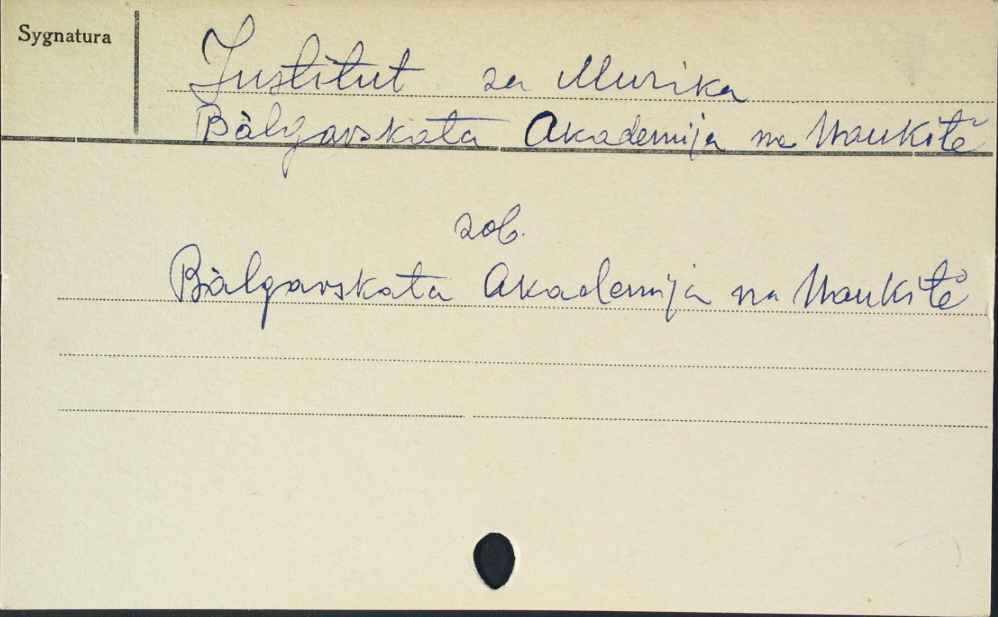 Sygnatura
Institut za Muzika
Bàlgarskata Akademija na Naukitě
zob.
Bàlgarskata Akademija na Naukitě